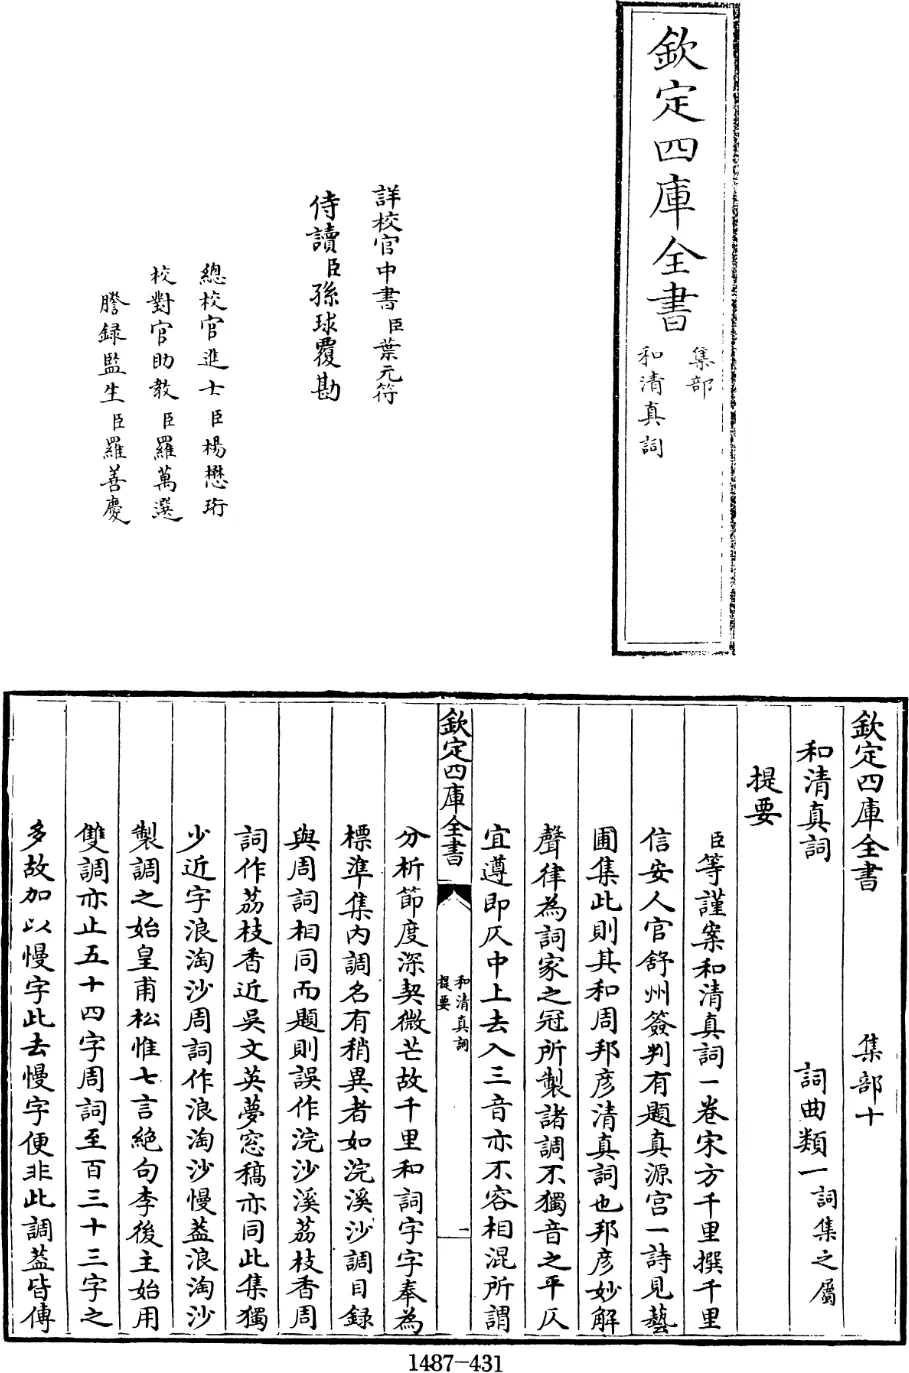 欽定四庫全書
集部
和清真詞
詳校官中書臣葉元符
侍讀臣孫球覆勘
總校官進士臣楊懋珩
校對官助教臣羅萬選
謄録監生臣羅善慶
欽定四庫全書 集部十
和清真詞 詞曲類一 詞集之屬
提要
臣等謹案和清真詞一卷宋方千里撰千里
信安人官舒州簽判有題真源宫一詩見藝
圃集此則其和周邦彦清真詞也邦彦妙解
聲律為詞家之冠所製諸調不獨音之平仄
宜遵即仄中上去入三音亦不容相混所謂
欽定四庫全書
和清真詞
提要
一
分析節度深契微芒故千里和詞字字奉為
標準集内調名有稍異者如浣溪沙調目録
與周詞相同而題則誤作浣沙溪荔枝香周
詞作荔枝香近吳文英夢窓稿亦同此集獨
少近字浪淘沙周詞作浪淘沙慢葢浪淘沙
製調之始皇甫松惟七言絶句李後主始用
雙調亦止五十四字周詞至百三十三字之
多故加以慢字此去慢字便非此調葢皆傳
1487-431